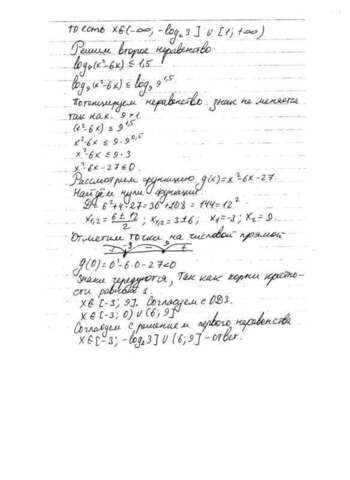 то есть x∈(-∞; -log₂3] ∪ [1; +∞)
Решим второе неравенство
log₉(x²-6x) ≤ 1,5
log₉(x²-6x) ≤ log₉ 9^1,5
Потенцируем неравенство знак не меняется
так как 9>1.
(x²-6x) ≤ 9^1,5
x²-6x ≤ 9·9^0,5
x²-6x ≤ 9·3
x²-6x-27≤0.
Рассмотрим функцию g(x)=x²-6x-27.
Найдём нули функции
D=6²+4·27=36+108=144=12²
x₁,₂ = (6±12)/2 ; x₁,₂=3±6; x₁=-3; x₂=9.
Отметим точки на числовой прямой
-3 9
g(0)=0²-6·0-27<0
Знаки чередуются, так как корни кратно-
сти равной 1.
x∈[-3; 9]. Согласуем с ОДЗ.
x∈[-3; 0) ∪ (6; 9]
Согласуем с решением первого неравенства
x∈[-3; -log₂3] ∪ (6; 9] - ответ.